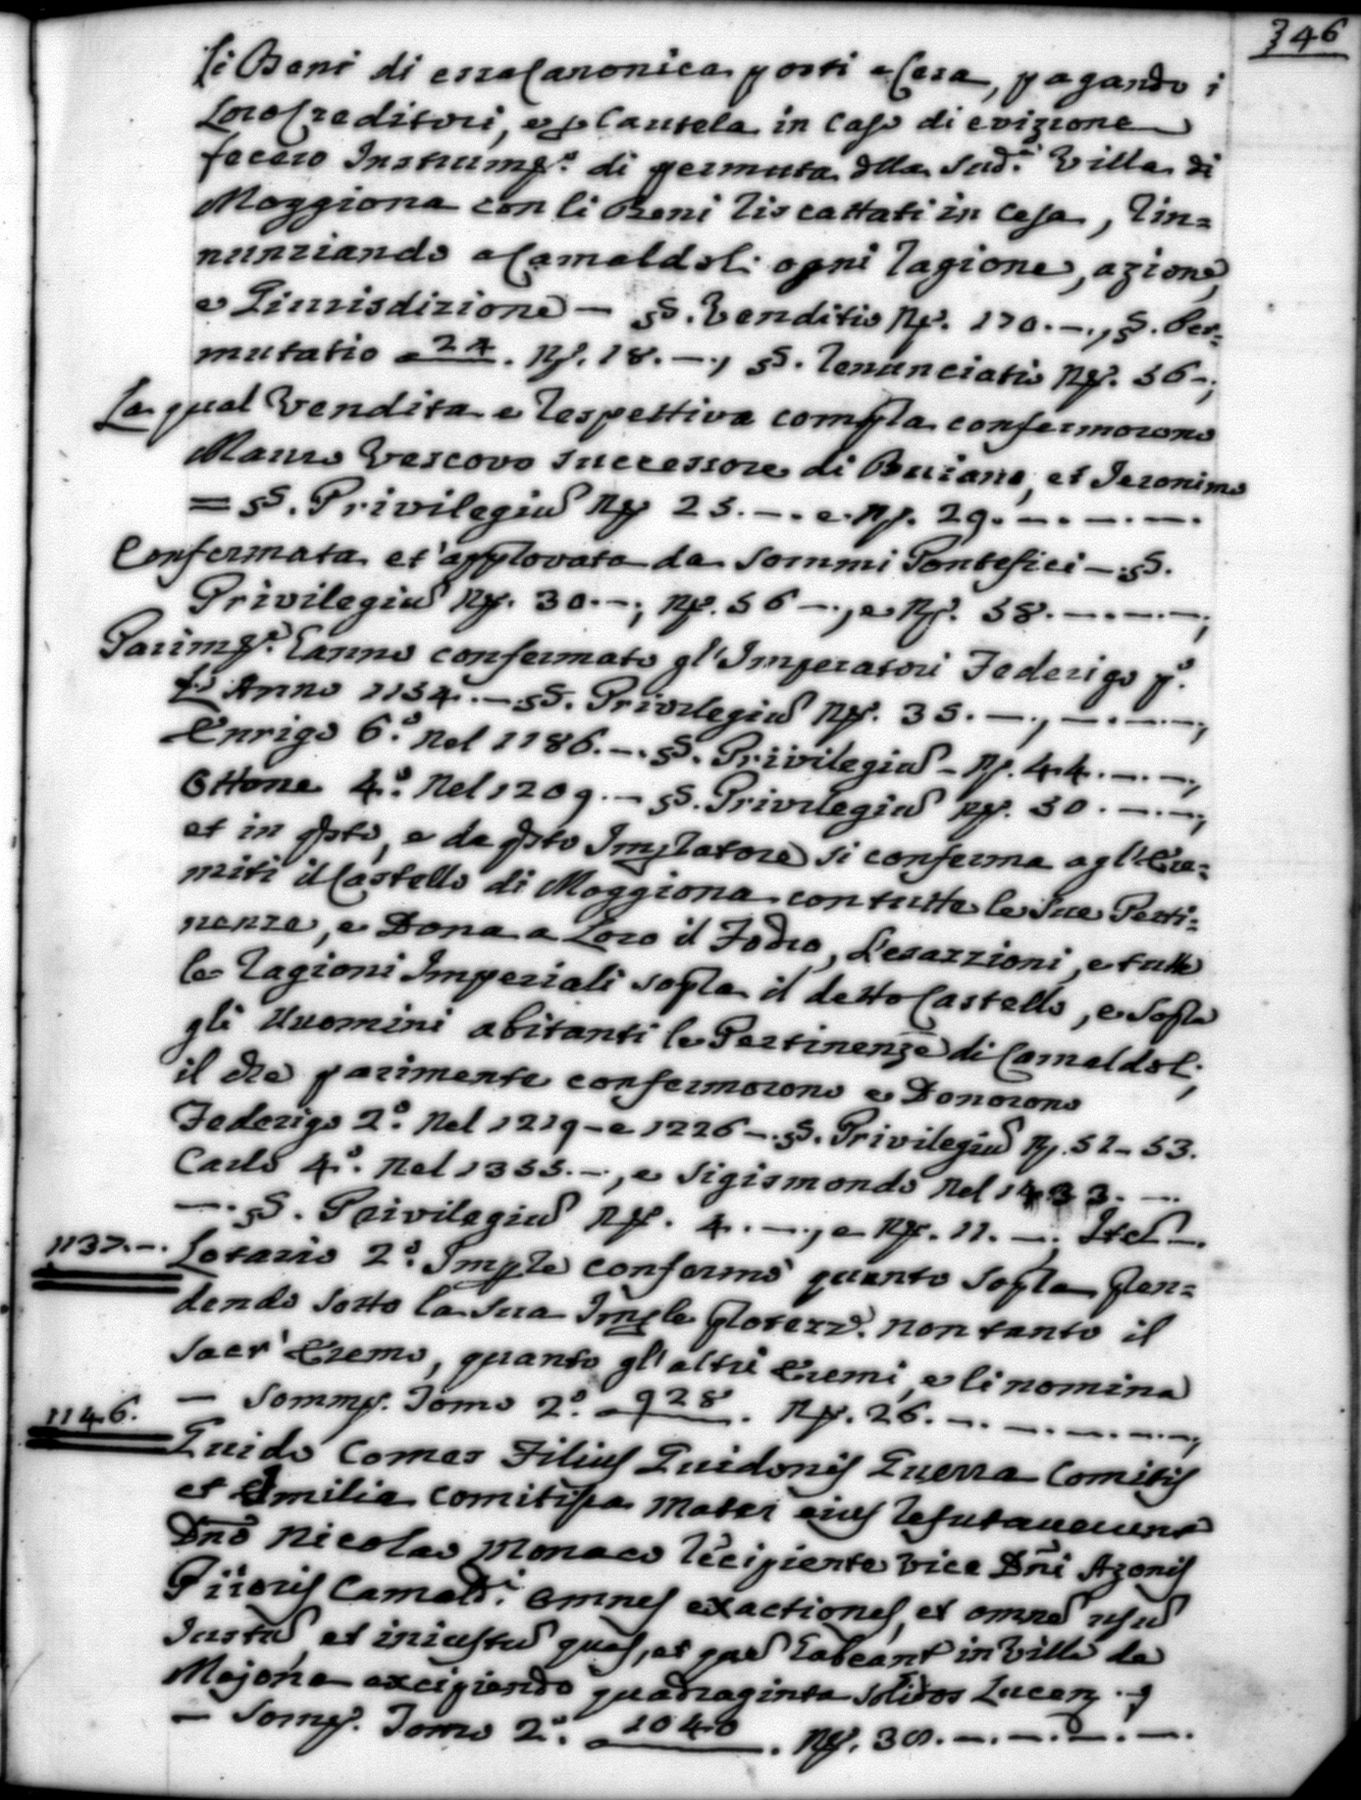 346
li Beni di essa Canonica posti a Cesa, pagando i
Loro Creditori, e p Cautela in caso di evizione
fecero Instrumto. di permuta dlla Sud.a Villa di
Moggiona con li Beni riscattati in Cesa, rin=
nunziando a Camaldoli ogni ragione, azione,
e Giurisdizione — §§. Venditio Nf. 170. —., §. Per=
mutatio a 24. Nf. 18. —., §§. renunciatio Nf. 56 —.;
La qual Vendita e respettiva compra confermorono
Mauro Vescovo successore di Buiano, et Jeronimo
= §§. Privilegiu Nf 25. —. e Nf. 29. — . — . — .
Confermata et approvata da Sommi Pontefici —. §§.
Privilegiu Nf. 30. —.; Nf. 56 —., e Nf. 58. — . — . —;
Parimte. hanno confermato gl'Imperatori Federigo p.o
L'Anno 1154. —. §§. Privilegiu Nf. 35. —., — . — . —,
Enrigo 6.o Nel 1186. —. §§. Privilegiu — Nf. 44. — . —,
Ottone 4.o Nel 1209. — §§. Privilegiu Nf. 50. — . —;
et in qsto, e da qsto Impratore si conferma agl'Ere=
miti il Castello di Moggiona con tutte le Sue Perti=
nenze, e Dona a Loro il Fodro, L'esazzioni, e tutte
le ragioni Imperiali sopra il detto Castello, e sopra
gli Uuomini abitanti le Pertinenze di Camaldoli;
il che parimente confermorono e Donorono
Federigo 2.o Nel 1219 — e 1226 —. §§. Privilegiu Nf. 52 — 53.
Carlo 4.o Nel 1355. —., e Sigismondo Nel 1433. —.
—. §§. Privilegiu Nf. 4. —., e Nf. 11. —; Ite —.
1137. —. Lotario 2.o Impre confermò quanto sopra pren=
dendo sotto la sua Imple protezz.e non tanto il
sacr' Eremo, quanto gl'altri Eremi, e li nomina
— Somm. Tomo 2.o 928. Nf. 26. — . — . — . —;
1146. Guido Comes Filius Guidonis Guerra Comitis
et Emilia comitissa Mater eius refutaverunt
Dno Nicolao Monaco recipiente vice Dni Azonis
Prioris Camald.i omnes exactiones, et omne usu
Justu, et iniustu quos, et que habeant in Villa de
Mojona excipiendo quadraginta solidos Lucen.
— Som. Tomo 2.o 1040. Nf. 30. — . — . — . — .